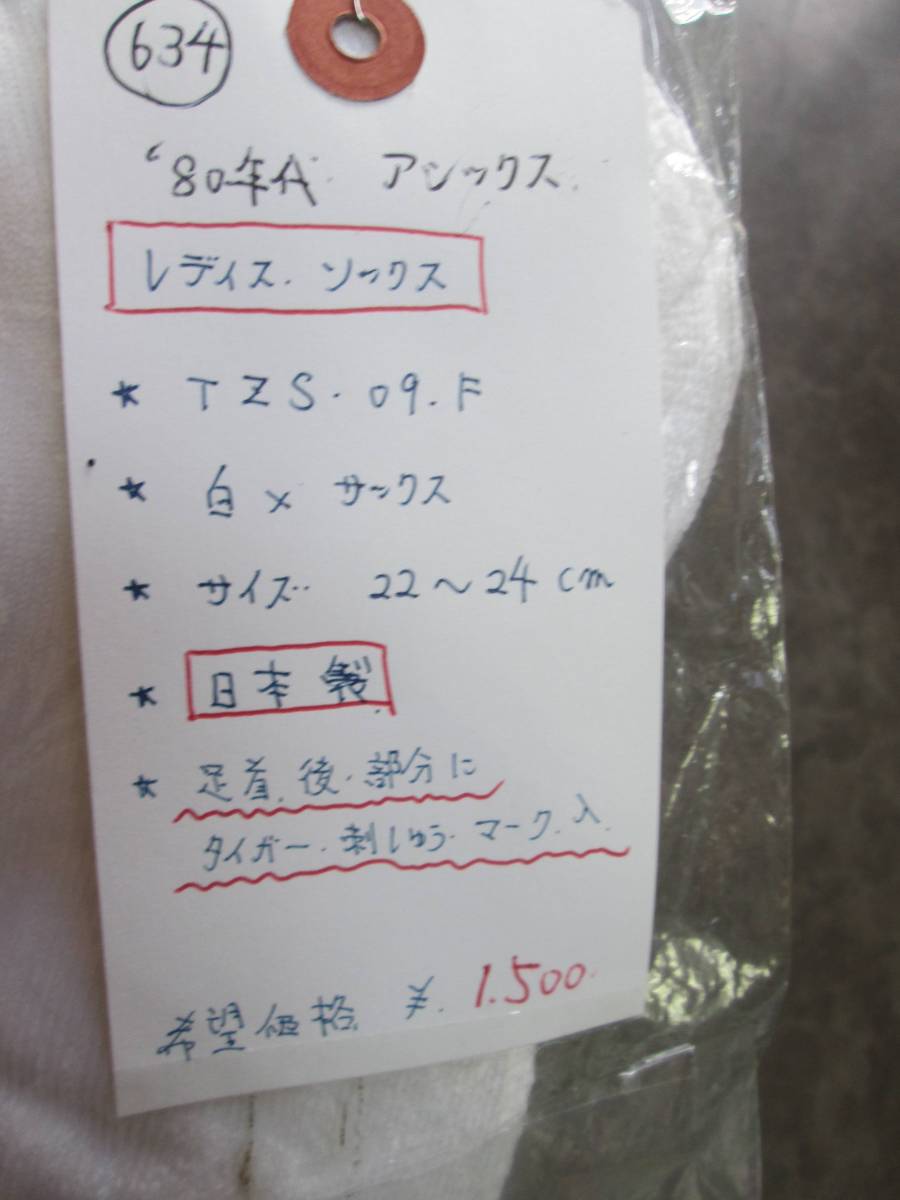 634
'80年代 アシックス
レディス. ソックス
★ TZS.09.F
★ 白 × サックス
★ サイズ 22～24cm
★ 日本製
★ 足首.後.部分に
タイガー.刺しゅう.マーク.入
希望価格 ¥.1.500